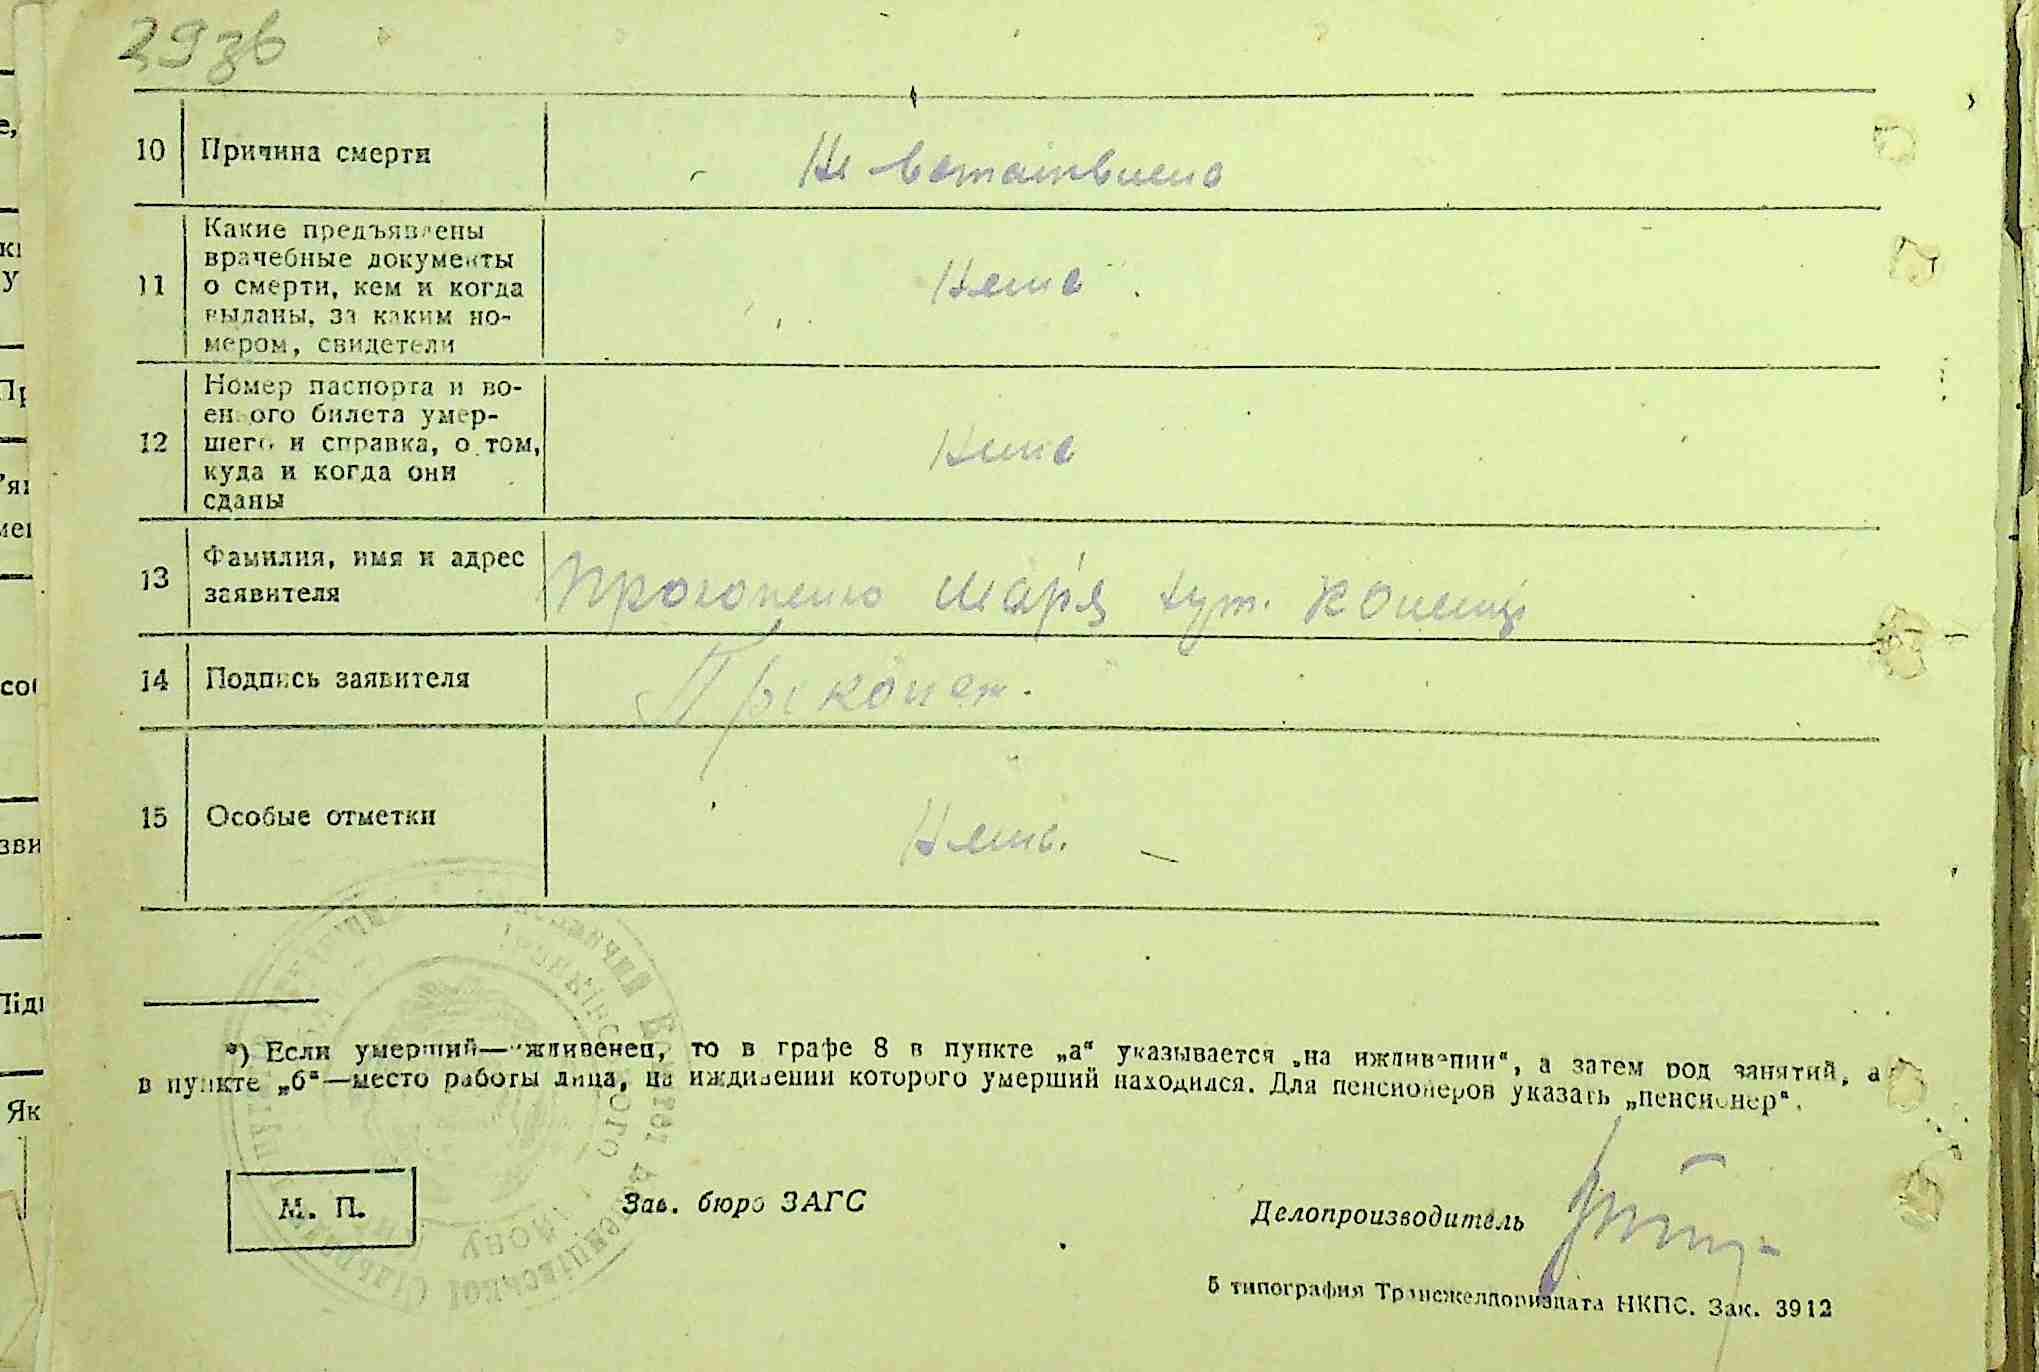 29зв
10 Причина смерти
Не встановлено
11 Какие предъявлены
врачебные документы
о смерти, кем и когда
выданы, за каким но-
мером, свидетели
Нема
12 Номер паспорта и во-
енного билета умер-
шего и справка, о том,
куда и когда они
сданы
Нема
13 Фамилия, имя и адрес
заявителя
Марія хут.
14 Подпись заявителя
15 Особые отметки
Нема.
*) Если умерший—иждивенец, то в графе 8 в пункте „а“ указывается „на иждивении“, а затем род занятий, а
в пункте „б“—место работы лица, на иждивении которого умерший находился. Для пенсионеров указать „пенсионер“.
М. П.
Зав. бюро ЗАГС
Делопроизводитель
5 типография Трансжелдориздата НКПС. Зак. 3912